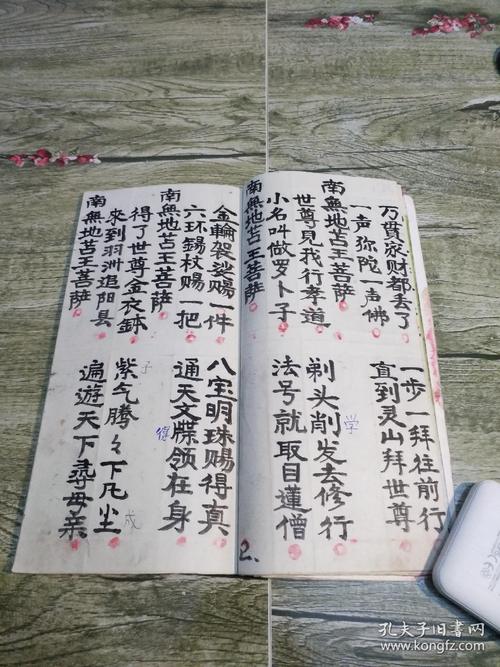 万貫家财都丢了
一步一拜往前行
一声弥陀一声佛
直到灵山拜世尊
南無地苦王菩萨
世尊見我行孝道
剃头削发去修行
学
小名叫做罗卜子
法号就取目蓮僧
南無地苦王菩萨
2.
金輪袈裟赐一件
八宝明珠赐得真
六环錫杖赐一把
通天文牒領在身
得
南無地苦王菩萨
得了世尊金衣鉢
紫气腾々下凡尘
子
成
來到羽洲追阳县
遍遊天下尋母亲
南無地苦王菩萨
孔夫子旧书网
www.kongfz.com